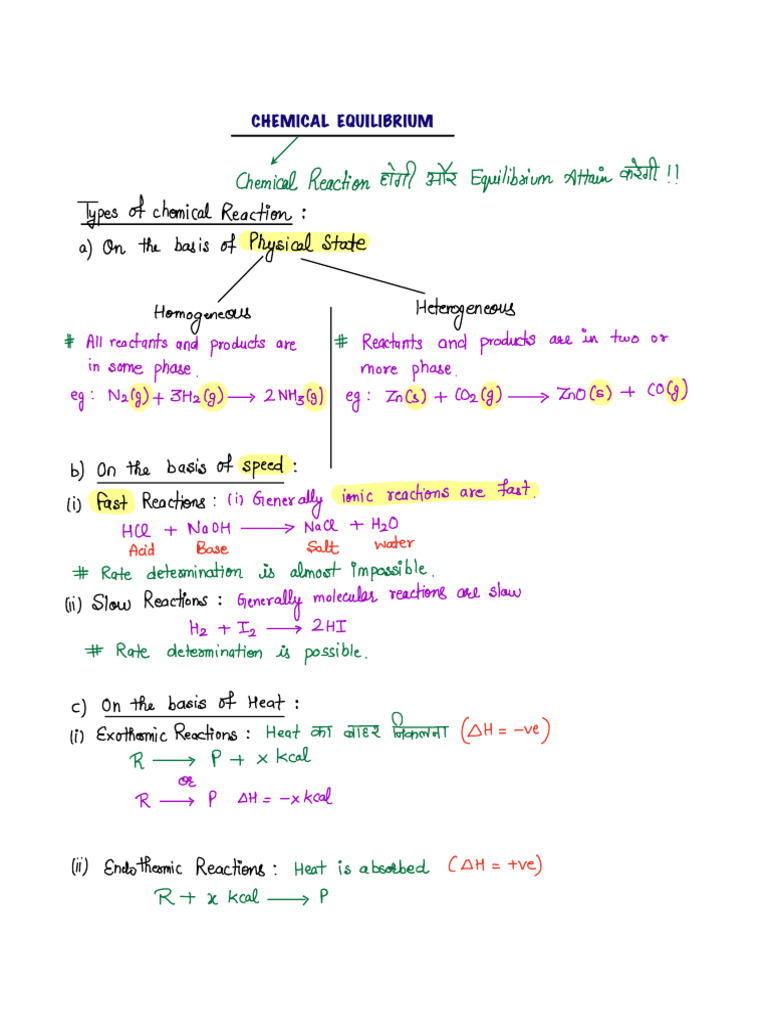 CHEMICAL EQUILIBRIUM
Chemical Reaction होगी और Equilibrium Attain करेगी !!
Types of chemical Reaction :
a) On the basis of Physical State
Homogeneous
# All reactants and products are
in same phase.
eg : N2(g) + 3H2(g) → 2NH3(g)
Heterogeneous
# Reactants and products are in two or
more phase.
eg : Zn(s) + CO2(g) → ZnO(s) + CO(g)
b) On the basis of speed :
(i) Fast Reactions : (i) Generally ionic reactions are fast.
HCl + NaOH → NaCl + H2O
Acid Base Salt water
# Rate determination is almost impossible.
(ii) Slow Reactions : Generally molecular reactions are slow
H2 + I2 → 2HI
# Rate determination is possible.
c) On the basis of Heat :
(i) Exothermic Reactions : Heat का बाहर निकलना (ΔH = -ve)
R → P + x kcal
or
R → P ΔH = -x kcal
(ii) Endothermic Reactions : Heat is absorbed (ΔH = +ve)
R + x kcal → P